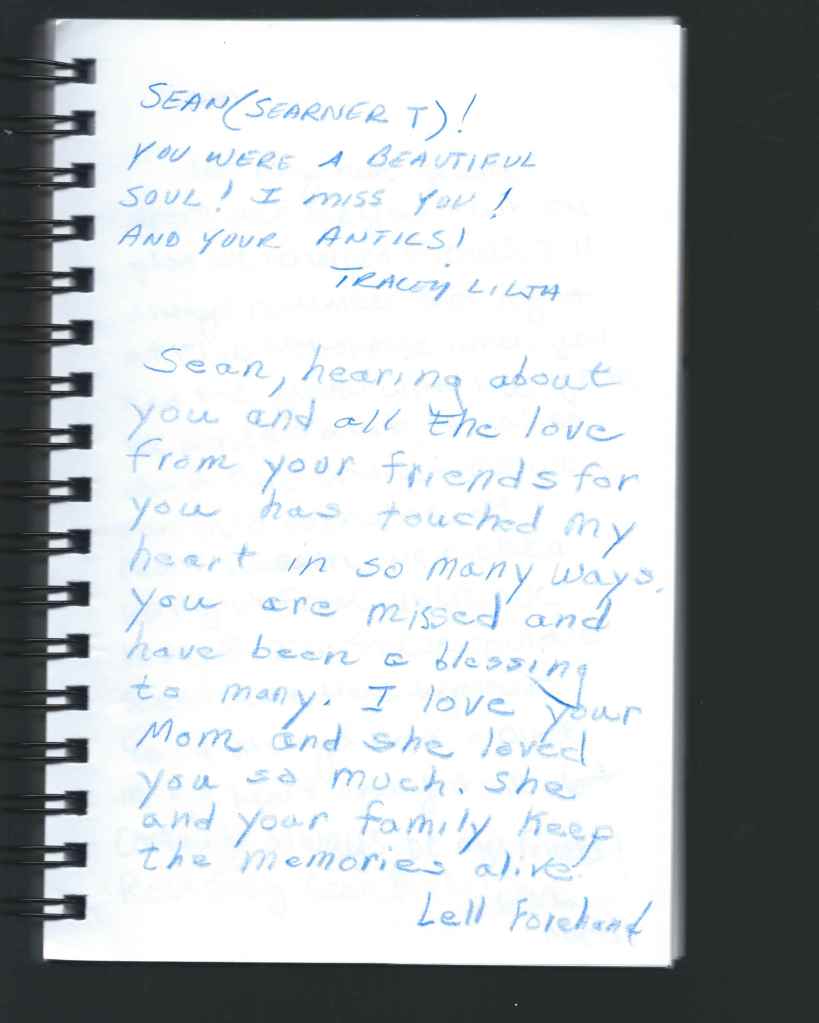 SEAN (SEARNER T)!
YOU WERE A BEAUTIFUL
SOUL! I MISS YOU!
AND YOUR ANTICS!
TRACEY LILJA
Sean, hearing about
you and all the love
from your friends for
you has touched my
heart in so many ways.
you are missed and
have been a blessing
to many. I love your
Mom and she loved
you so much. She
and your family keep
the memories alive.
Lell Forehand